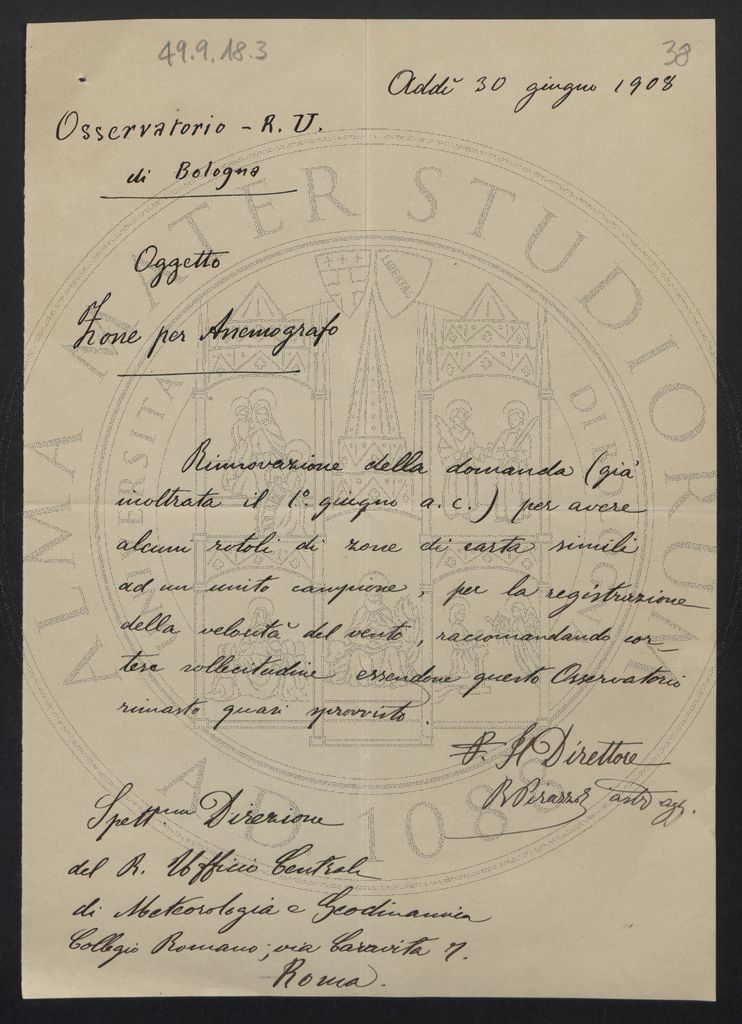 49.9.18.3
38
Addì 30 giugno 1908
Osservatorio - R. U.
di Bologna
Oggetto
Zone per Anemografo
Rinnovazione della domanda (già
inoltrata il 1.° giugno a. c.) per avere
alcuni rotoli di zone di carta simili
ad un unito campione, per la registrazione
della velocità del vento, raccomandando cor-
tese sollecitudine essendone questo Osservatorio
rimasto quasi sprovvisto.
P. Il Direttore
Spett.ma Direzione
del R. Ufficio Centrale
di Meteorologia e Geodinamica
Collegio Romano; via Caravita 7.
Roma.
ALMA MATER STUDIORUM
AD 1088
LIBERTAS